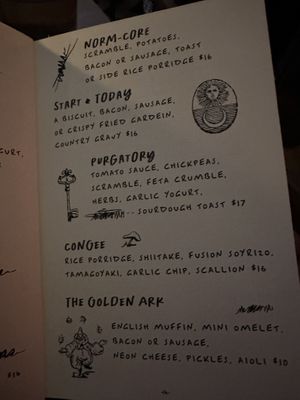 NORM-CORE
SCRAMBLE, POTATOES,
BACON OR SAUSAGE, TOAST
OR SIDE RICE PORRIDGE $16
START * TODAY
A BISCUIT, BACON, SAUSAGE,
OR CRISPY FRIED GARDEIN,
COUNTRY GRAVY $16
PURGATORY
TOMATO SAUCE, CHICKPEAS,
SCRAMBLE, FETA CRUMBLE,
HERBS, GARLIC YOGURT,
SOURDOUGH TOAST $17
CONGEE
RICE PORRIDGE, SHIITAKE, FUSION SOYRIZO,
TAMAGOYAKI, GARLIC CHIP, SCALLION $16
THE GOLDEN ARK
ENGLISH MUFFIN, MINI OMELET,
BACON OR SAUSAGE,
NEON CHEESE, PICKLES, AIOLI $10